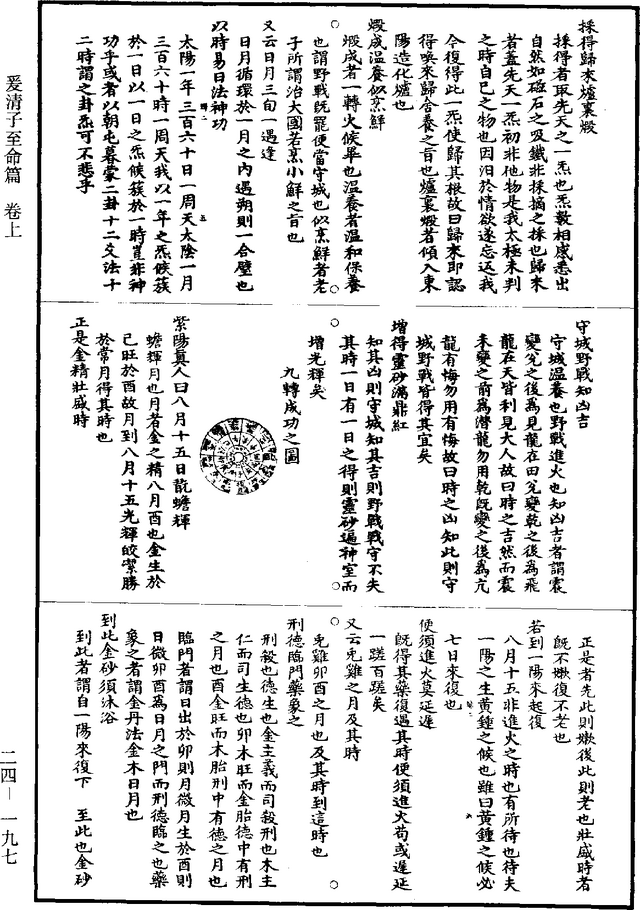 爰清子至命篇　卷上
二四—一九七
採得歸來爐裏煅
採得者取先天之一炁也炁數相感悉出
自然如磁石之吸鐵非採摘之採也歸來
若蓋先天一炁初非他物是我太極未判
之時自己之物也因汨於情欲遂忘返我
今復得此一炁使歸其根故曰歸來即認
得喚來歸合養之旨也爐裏煅者傾入東
陽造化爐也
煅成溫養似烹鮮
煅成者一轉火候畢也溫養者溫和保養
也謂野戰既罷便當守城也似烹鮮者老
子所謂治大國若烹小鮮之旨也
又云日月三旬一遇逢
日月循環於一月之內遇朔則一合璧也
以時易日法神功
太陽一年三百六十日一周天太陰一月
三百六十時一周天我以一年之炁候簇
於一日以一日之炁候簇於一時豈非神
功乎或者以朝屯暮蒙二卦十二爻法十
二時謂之卦炁可不悲乎
守城野戰知凶吉
守城溫養也野戰進火也知凶吉者謂震
變兌之後為見龍在田兌變乾之後為飛
龍在天皆利見大人故曰時之吉然而震
未變之前為潛龍勿用乾既變之後為亢
龍有悔勿用有悔故曰時之凶知此則守
城野戰皆得其宜矣
增得靈砂滿鼎紅
知其凶則守城知其吉則野戰戰守不失
其時一日有一日之得則靈砂遍神室而
增光輝矣
九轉成功之圖
紫陽真人曰八月十五日翫蟾輝
蟾輝月也月者金之精八月酉也金生於
己旺於酉故月到八月十五光輝皎潔勝
於常月得其時也
正是金精壯盛時
正是者先此則嫩後此則老也壯盛時者
既不嫩復不老也
若到一陽來起復
八月十五非進火之時也有所待也待夫
一陽之生黃鍾之候也雖曰黃鍾之候必
七日來復也
便須進火莫延遲
既得其藥復遇其時便須進火苟或遲延
一蹉百蹉矣
又云兎雞之月及其時
兎雞卯酉之月也及其時到這時也
刑德臨門藥象之
刑殺也德生也金主義而司殺刑也木主
仁而司生德也卯木旺而金胎德中有刑
之月也酉金旺而木胎刑中有德之月也
臨門者謂日出於卯則月微月生於酉則
日微卯酉為日月之門而刑德臨之也藥
象之者謂金丹法金木日月也
到此金砂須沐浴
到此者謂自一陽來復下　至此也金砂